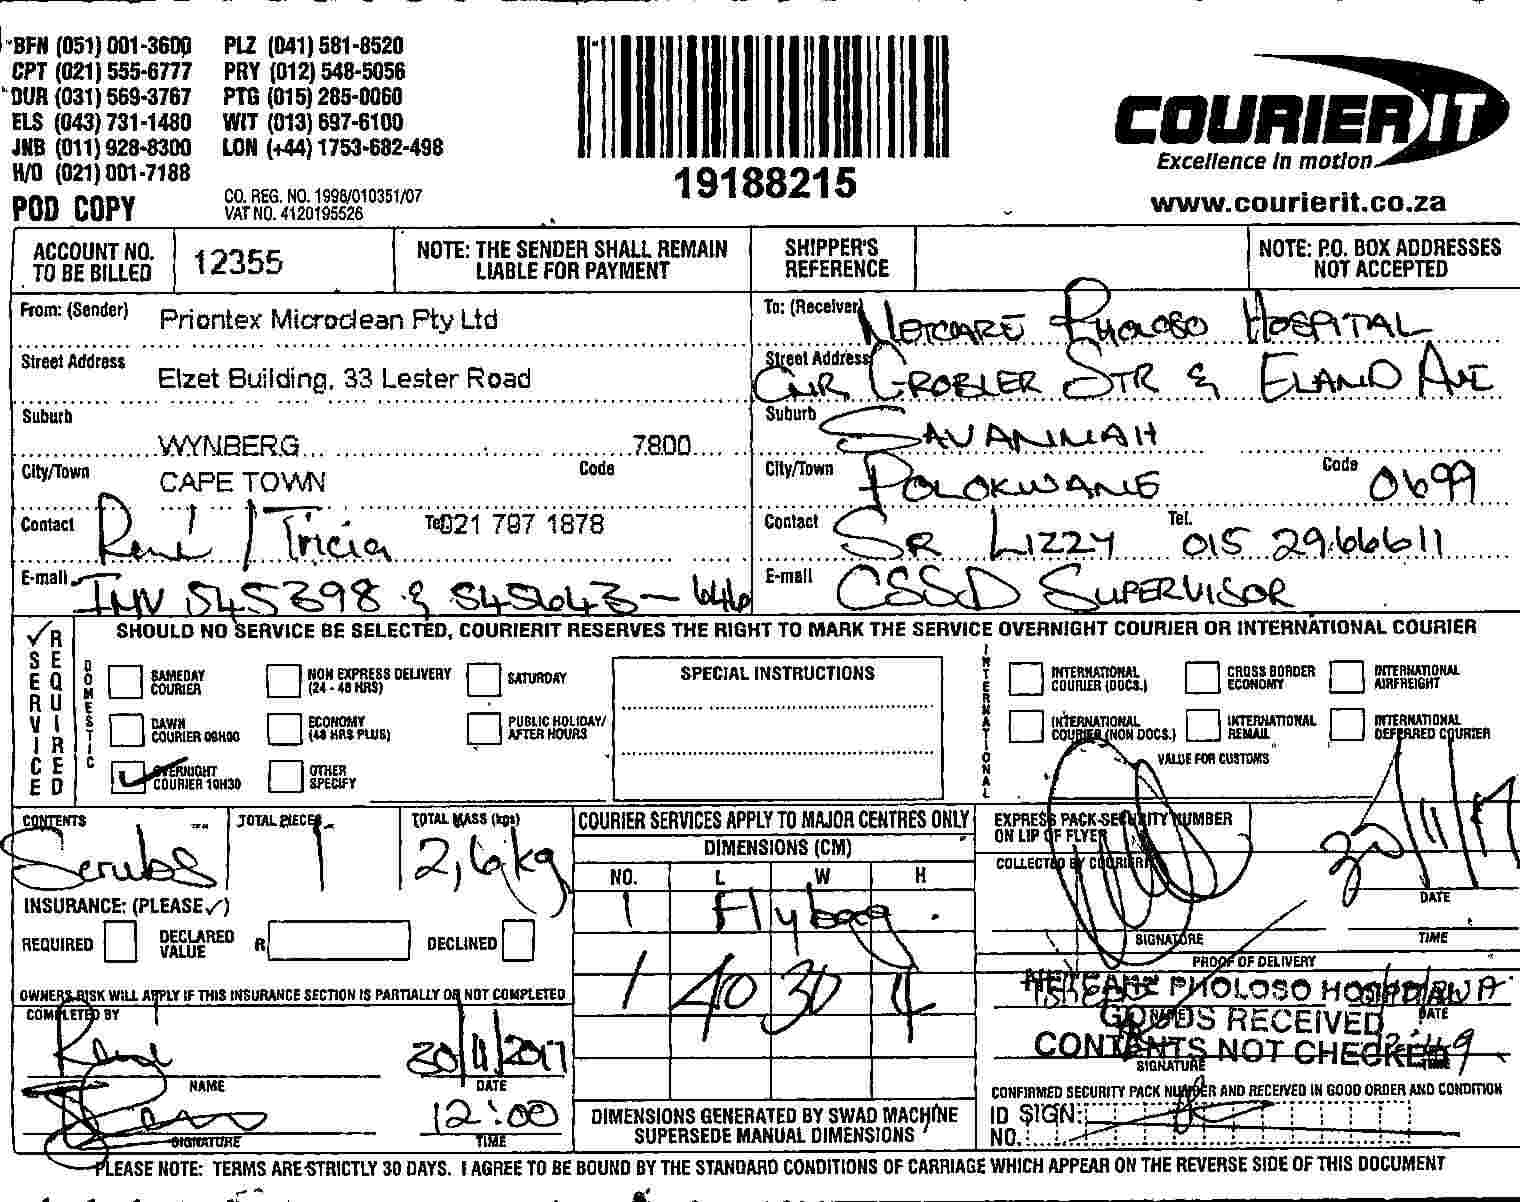 BFN (051) 001-3600 PLZ (041) 581-8520
CPT (021) 555-6777 PRY (012) 548-5056
DUR (031) 569-3767 PTG (015) 285-0060
ELS (043) 731-1480 WIT (013) 697-6100
JNB (011) 928-8300 LON (+44) 1753-682-498
H/O (021) 001-7188
POD COPY
CO. REG. NO. 1998/010351/07
VAT NO. 4120195526
19188215
COURIERIT
Excellence in motion
www.courierit.co.za
ACCOUNT NO. TO BE BILLED 12355
NOTE: THE SENDER SHALL REMAIN LIABLE FOR PAYMENT
SHIPPER'S REFERENCE
NOTE: P.O. BOX ADDRESSES NOT ACCEPTED
From: (Sender) Priontex Microclean Pty Ltd
Street Address Elzet Building, 33 Lester Road
Suburb WYNBERG 7800
City/Town CAPE TOWN Code
Contact René / Tricia Tel 021 797 1878
E-mail INV 545398 & 545643-646
To: (Receiver) NETCARE PHOLOSO HOSPITAL
Street Address CNR GROBLER STR & ELAND AVE
Suburb SAVANNAH
City/Town POLOKWANE Code 0699
Contact SR LIZZY Tel. 015 2966611
E-mail CSSD SUPERVISOR
SHOULD NO SERVICE BE SELECTED, COURIERIT RESERVES THE RIGHT TO MARK THE SERVICE OVERNIGHT COURIER OR INTERNATIONAL COURIER
SERVICE REQUIRED
DOMESTIC
SAMEDAY COURIER
NON EXPRESS DELIVERY (24 - 48 HRS)
SATURDAY
DAWN COURIER 09H00
ECONOMY (48 HRS PLUS)
PUBLIC HOLIDAY/ AFTER HOURS
OVERNIGHT COURIER 10H30
OTHER SPECIFY
SPECIAL INSTRUCTIONS
INTERNATIONAL
INTERNATIONAL COURIER (DOCS.)
CROSS BORDER ECONOMY
INTERNATIONAL AIRFREIGHT
INTERNATIONAL COURIER (NON DOCS.)
INTERNATIONAL REMAIL
INTERNATIONAL DEFERRED COURIER
VALUE FOR CUSTOMS
CONTENTS Scrubs
TOTAL PIECES 1
TOTAL MASS (kgs) 2,6kg
INSURANCE: (PLEASE ✓)
REQUIRED DECLARED VALUE R DECLINED
OWNERS RISK WILL APPLY IF THIS INSURANCE SECTION IS PARTIALLY OR NOT COMPLETED
COMPLETED BY
René 30/11/2017
NAME DATE
12:00
SIGNATURE TIME
COURIER SERVICES APPLY TO MAJOR CENTRES ONLY
DIMENSIONS (CM)
NO. L W H
1 Flybag
1 40 30 4
DIMENSIONS GENERATED BY SWAD MACHINE SUPERSEDE MANUAL DIMENSIONS
EXPRESS PACK SECURITY NUMBER ON LIP OF FLYER
COLLECTED BY COURIERIT
30/11/17
DATE
SIGNATURE TIME
PROOF OF DELIVERY
NETCARE PHOLOSO HOSPITAL
NAME DATE
GOODS RECEIVED
CONTENTS NOT CHECKED
SIGNATURE
CONFIRMED SECURITY PACK NUMBER AND RECEIVED IN GOOD ORDER AND CONDITION
ID NO. SIGN:
PLEASE NOTE: TERMS ARE STRICTLY 30 DAYS. I AGREE TO BE BOUND BY THE STANDARD CONDITIONS OF CARRIAGE WHICH APPEAR ON THE REVERSE SIDE OF THIS DOCUMENT